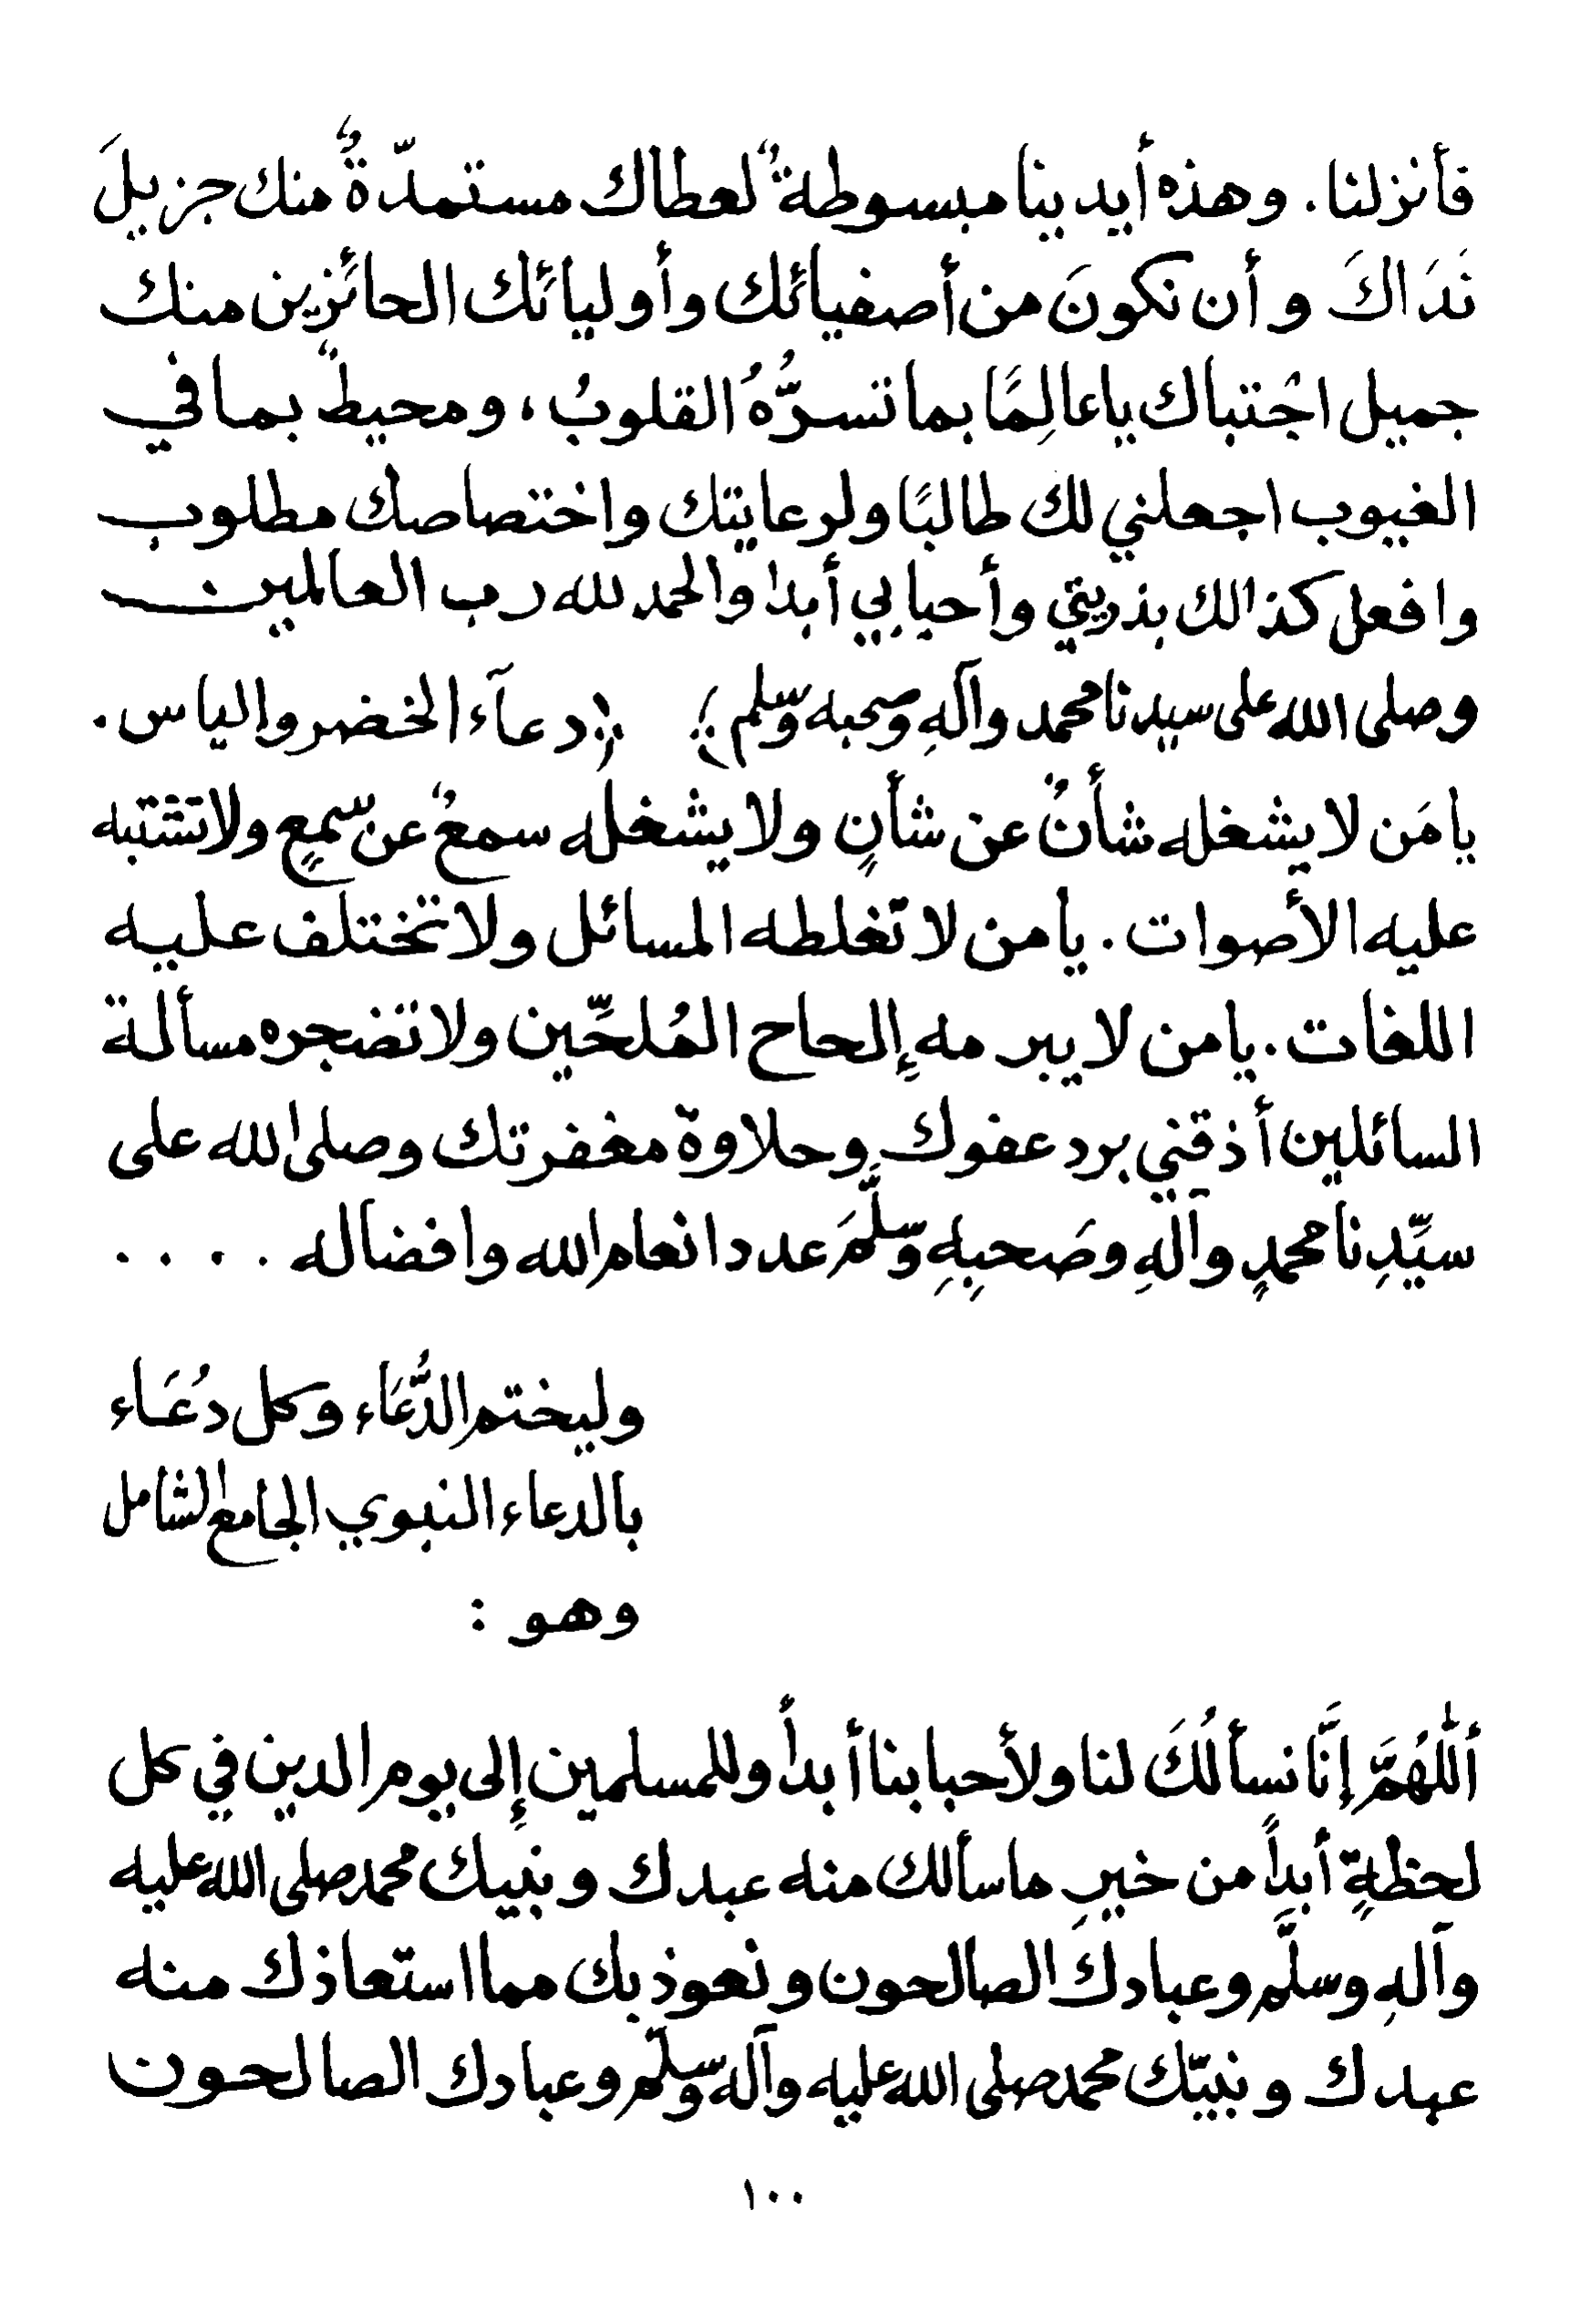 فأنزلنا . وهذه أيدينا مبسوطةٌ لعطاك مستمدّةٌ منك جزيلَ
نَدَاكَ وأن نكونَ من أصفيائك وأوليائك الحائزين منك
جميل اجْتباك ياعالِمًا بما تسرُّهُ القلوبُ ، ومحيطٌ بما في
الغيوب اجعلني لك طالبًا ولرعايتك واختصاصك مطلوب
وافعل كذالك بذريتي وأحبابي أبدا والحمد لله رب العالمين
وصلى الله على سيدنا محمد وآلهِ وصحبه وسلم ﴾ ﴿ دعآء الخضر والياس .
يامَن لا يشغله شأنٌ عن شأنٍ ولا يشغله سمعٌ عن سّمعٍ ولا تشتبه
عليه الأصوات . يامن لا تغلطه المسائل ولا تختلف عليه
اللغات . يامن لا يبرمه إلحاح المُلحِّين ولا تضجره مسألة
السائلين أذقني برد عفوك وحلاوة مغفرتك وصلى الله على
سيِّدِنا محمدٍ وآلهِ وصَحبِهِ وسلَّمَ عدد انعام الله وافضاله . . . .
وليختم الدُّعَاء وكل دُعَاء
بالدعاء النبوي الجامع الشامل
وهو :
أللهُمَّ إنَّا نسألُكَ لنا ولأحبابنا أبداً وللمسلمين إلى يوم الدين في كل
لحظةٍ أبداً من خيرِ ماسألك منه عبدك ونبيك محمد صلى الله عليه
وآلهِ وسلَّم وعبادك الصالحون ونعوذ بك مما استعاذك منه
عبدك ونبيّك محمد صلى الله عليه وآله وسلّم وعبادك الصالحون
١٠٠